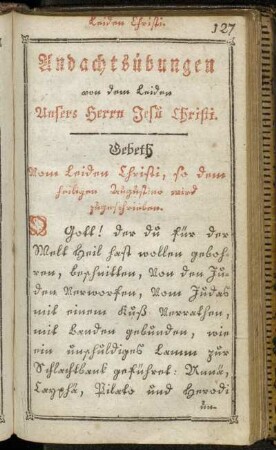 Leiden Christi.
127
Andachtsübungen
von dem Leiden
Unsers Herrn Jesü Christi.
Gebeth
Vom Leiden Christi, so dem
heiligen Augustino wird
zugeschrieben.
O Gott! der du für der
Welt Heil hast wollen geboh-
ren, beschnitten, Von den Ju-
den Verworfen, Vom Judas
mit einem Kuß Verrathen,
mit Banden gebunden, wie
ein unschuldiges Lamm zur
Schlachtbank geführet: Annä,
Cayphä, Pilato und Herodi
un-